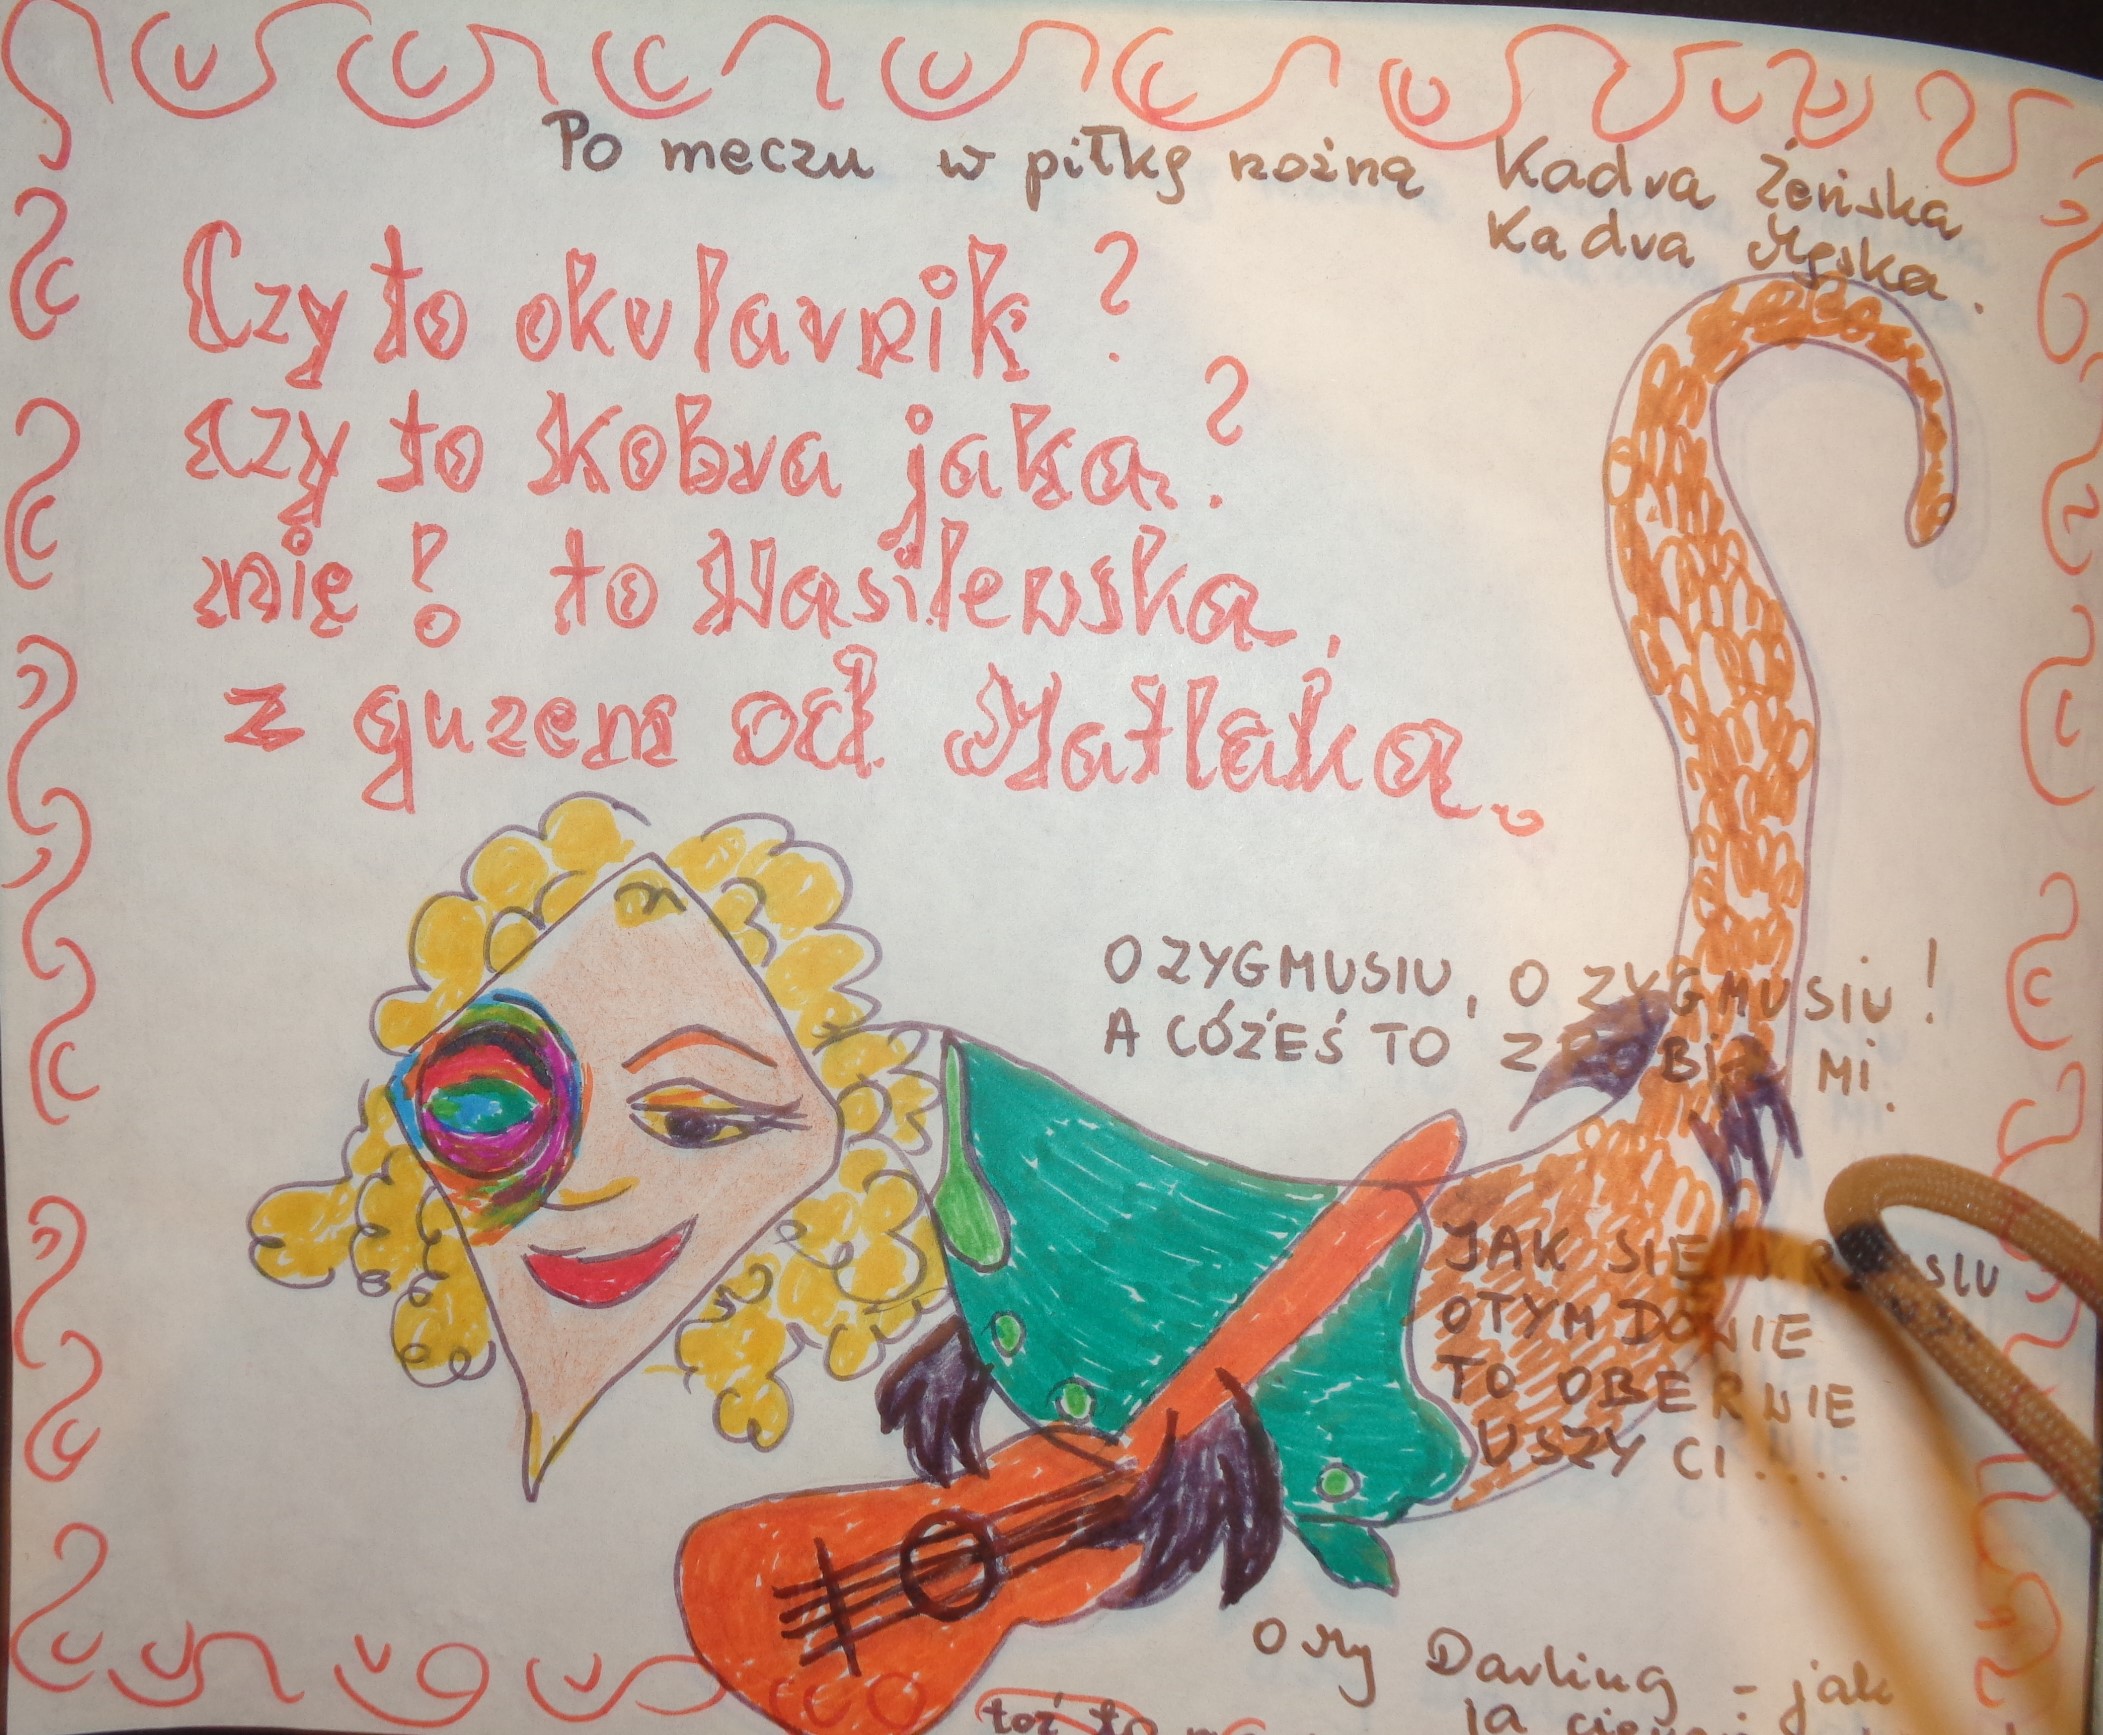 Po meczu w piłkę nożną Kadra Żeńska
Kadra Męska.
Czy to okularnik?
czy to kobra jaka?
nie! to Wasilewska,
z guzem od Matlaka.
O ZYGMUSIU, O ZYGMUSIU!
A CÓŻEŚ TO ZROBIŁ MI.
JAK SIĘ
O TYM DONIE
TO OBERNIE
USZY CI....
O My Darling - jak
ja
toż to